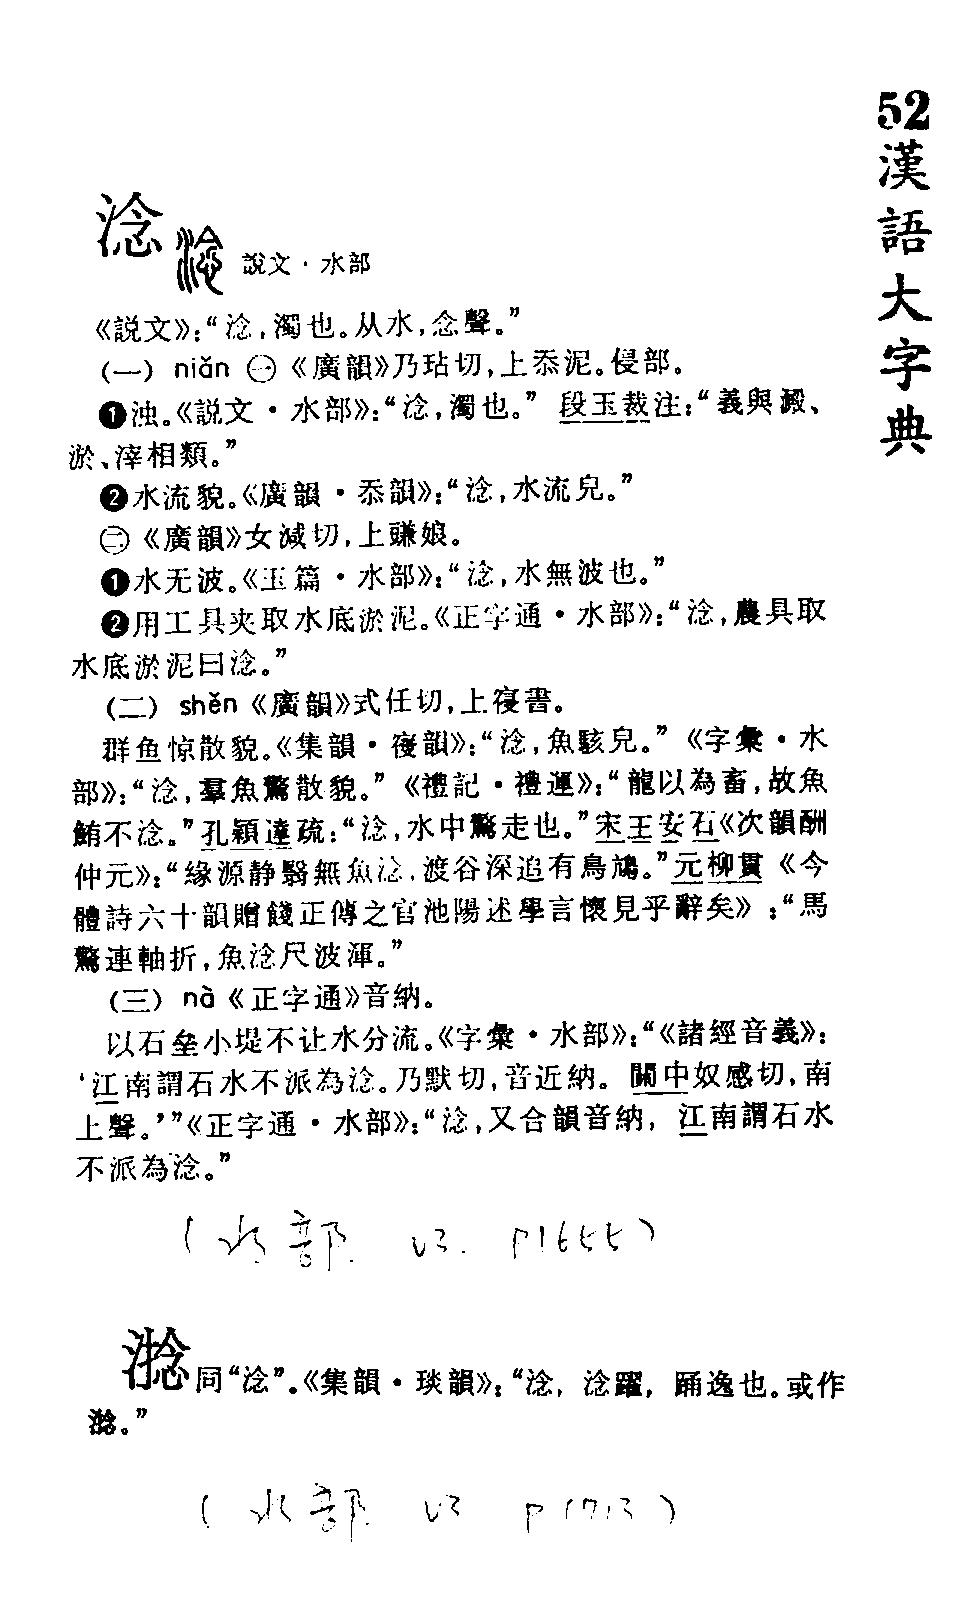 52
漢語大字典
淰 說文·水部
《説文》：“淰，濁也。从水，念聲。”
（一） niǎn ㊀《廣韻》乃玷切，上忝泥。侵部。
❶浊。《説文·水部》：“淰，濁也。” 段玉裁注：“義與澱、
淤、滓相類。”
❷水流貌。《廣韻·忝韻》：“淰，水流皃。”
㊁《廣韻》女減切，上豏娘。
❶水无波。《玉篇·水部》：“淰，水無波也。”
❷用工具夹取水底淤泥。《正字通·水部》：“淰，農具取
水底淤泥曰淰。”
（二） shěn《廣韻》式任切，上寑書。
群鱼惊散貌。《集韻·寑韻》：“淰，魚駭皃。” 《字彙·水
部》：“淰，羣魚驚散貌。” 《禮記·禮運》：“龍以為畜，故魚
鮪不淰。”孔穎達疏：“淰，水中驚走也。”宋王安石《次韻酬
仲元》：“緣源静翳無魚淰，渡谷深追有鳥鳩。”元柳貫《今
體詩六十韻贈餞正傳之官池陽述學言懷見乎辭矣》：“馬
驚連軸折，魚淰尺波渾。”
（三） nà《正字通》音納。
以石垒小堤不让水分流。《字彙·水部》：“《諸經音義》：
‘江南謂石水不派為淰。乃默切，音近納。關中奴感切，南
上聲。’”《正字通·水部》：“淰，又合韻音納，江南謂石水
不派為淰。”
（水部 v3. P1655）
同“淰”。《集韻·琰韻》：“淰，淰躍，踊逸也。或作
（水部 v3 P1713）